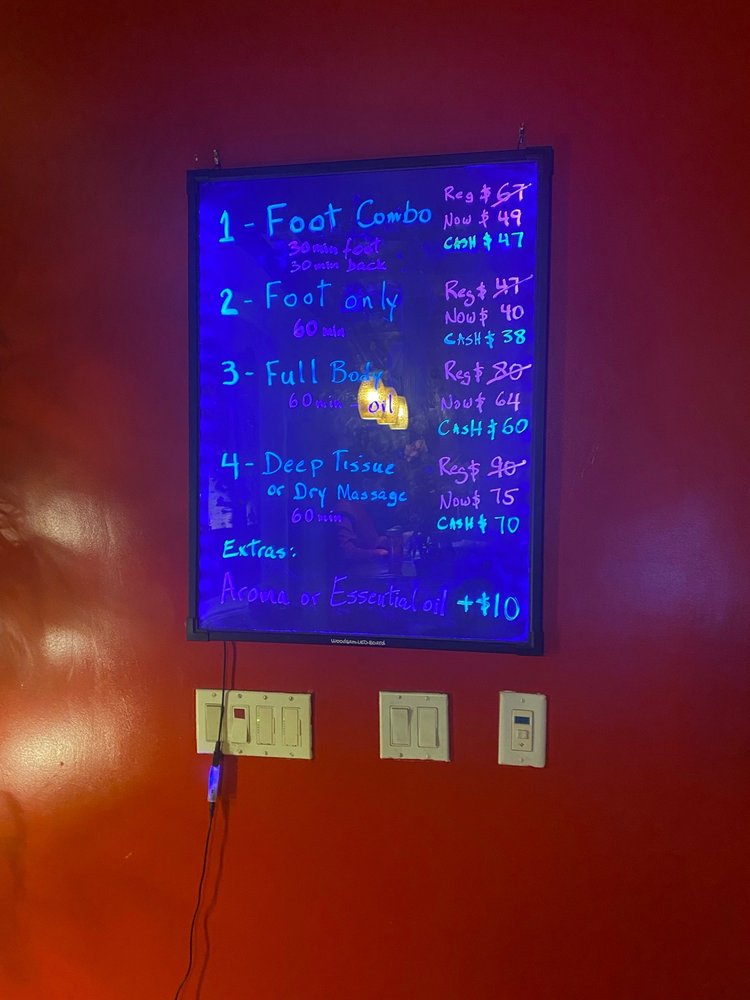 1 - Foot Combo Reg $ 67
30min foot Now $ 49
30min back CASH $ 47
2 - Foot only Reg $ 47
60 min Now $ 40
CASH $ 38
3 - Full Body Reg $ 80
60 min - oil Now $ 64
CASH $ 60
4 - Deep Tissue Reg $ 90
or Dry Massage Now $ 75
60 min CASH $ 70
Extras:
Aroma or Essential oil +$10
Woodsam LED Board